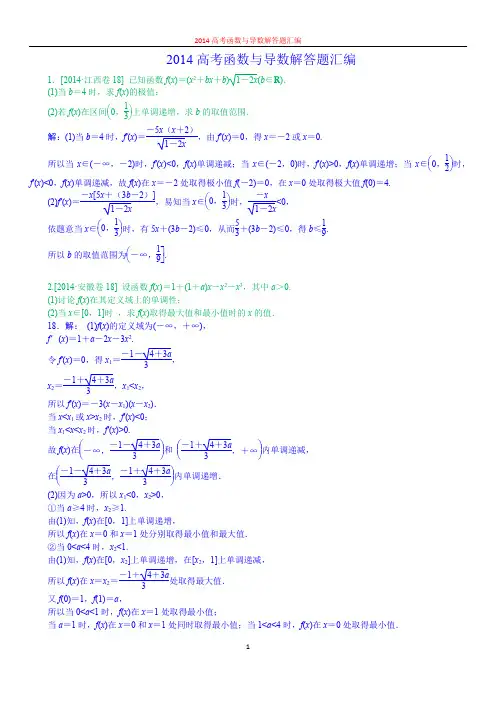 2014高考函数与导数解答题汇编
2014高考函数与导数解答题汇编
1．[2014·江西卷18] 已知函数f(x)＝(x²＋bx＋b)√(1－2x)(b∈R)．
(1)当b＝4时，求f(x)的极值；
(2)若f(x)在区间(0，1/3)上单调递增，求b的取值范围．
解：(1)当b＝4时，f′(x)＝－5x（x＋2）/√(1－2x)，由f′(x)＝0，得x＝－2或x＝0.
所以当x∈(－∞，－2)时，f′(x)<0，f(x)单调递减；当x∈(－2，0)时，f′(x)>0，f(x)单调递增；当x∈(0，1/2)时，
f′(x)<0，f(x)单调递减，故f(x)在x＝－2处取得极小值f(－2)＝0，在x＝0处取得极大值f(0)＝4.
(2)f′(x)＝－x[5x＋（3b－2）]/√(1－2x)，易知当x∈(0，1/3)时，－x/√(1－2x)<0，
依题意当x∈(0，1/3)时，有5x＋(3b－2)≤0，从而5/3＋(3b－2)≤0，得b≤1/9.
所以b的取值范围为(－∞，1/9].
2.[2014·安徽卷18] 设函数f(x)＝1＋(1＋a)x－x²－x³，其中a＞0.
(1)讨论f(x)在其定义域上的单调性；
(2)当x∈[0，1]时 ，求f(x)取得最大值和最小值时的x的值．
18．解： (1)f(x)的定义域为(－∞，＋∞)，
f′(x)＝1＋a－2x－3x².
令f′(x)＝0，得x₁＝(－1－√(4＋3a))/3，
x₂＝(－1＋√(4＋3a))/3，x₁<x₂，
所以f′(x)＝－3(x－x₁)(x－x₂)．
当x<x₁或x>x₂时，f′(x)<0；
当x₁<x<x₂时，f′(x)>0.
故f(x)在(－∞，(－1－√(4＋3a))/3)和 ((－1＋√(4＋3a))/3，＋∞)内单调递减，
在((－1－√(4＋3a))/3，(－1＋√(4＋3a))/3)内单调递增．
(2)因为a>0，所以x₁<0，x₂>0，
①当a≥4时，x₂≥1.
由(1)知，f(x)在[0，1]上单调递增，
所以f(x)在x＝0和x＝1处分别取得最小值和最大值．
②当0<a<4时，x₂<1.
由(1)知，f(x)在[0，x₂]上单调递增，在[x₂，1]上单调递减，
所以f(x)在x＝x₂＝(－1＋√(4＋3a))/3处取得最大值．
又f(0)＝1，f(1)＝a，
所以当0<a<1时，f(x)在x＝1处取得最小值；
当a＝1时，f(x)在x＝0和x＝1处同时取得最小值；当1<a<4时，f(x)在x＝0处取得最小值．
1